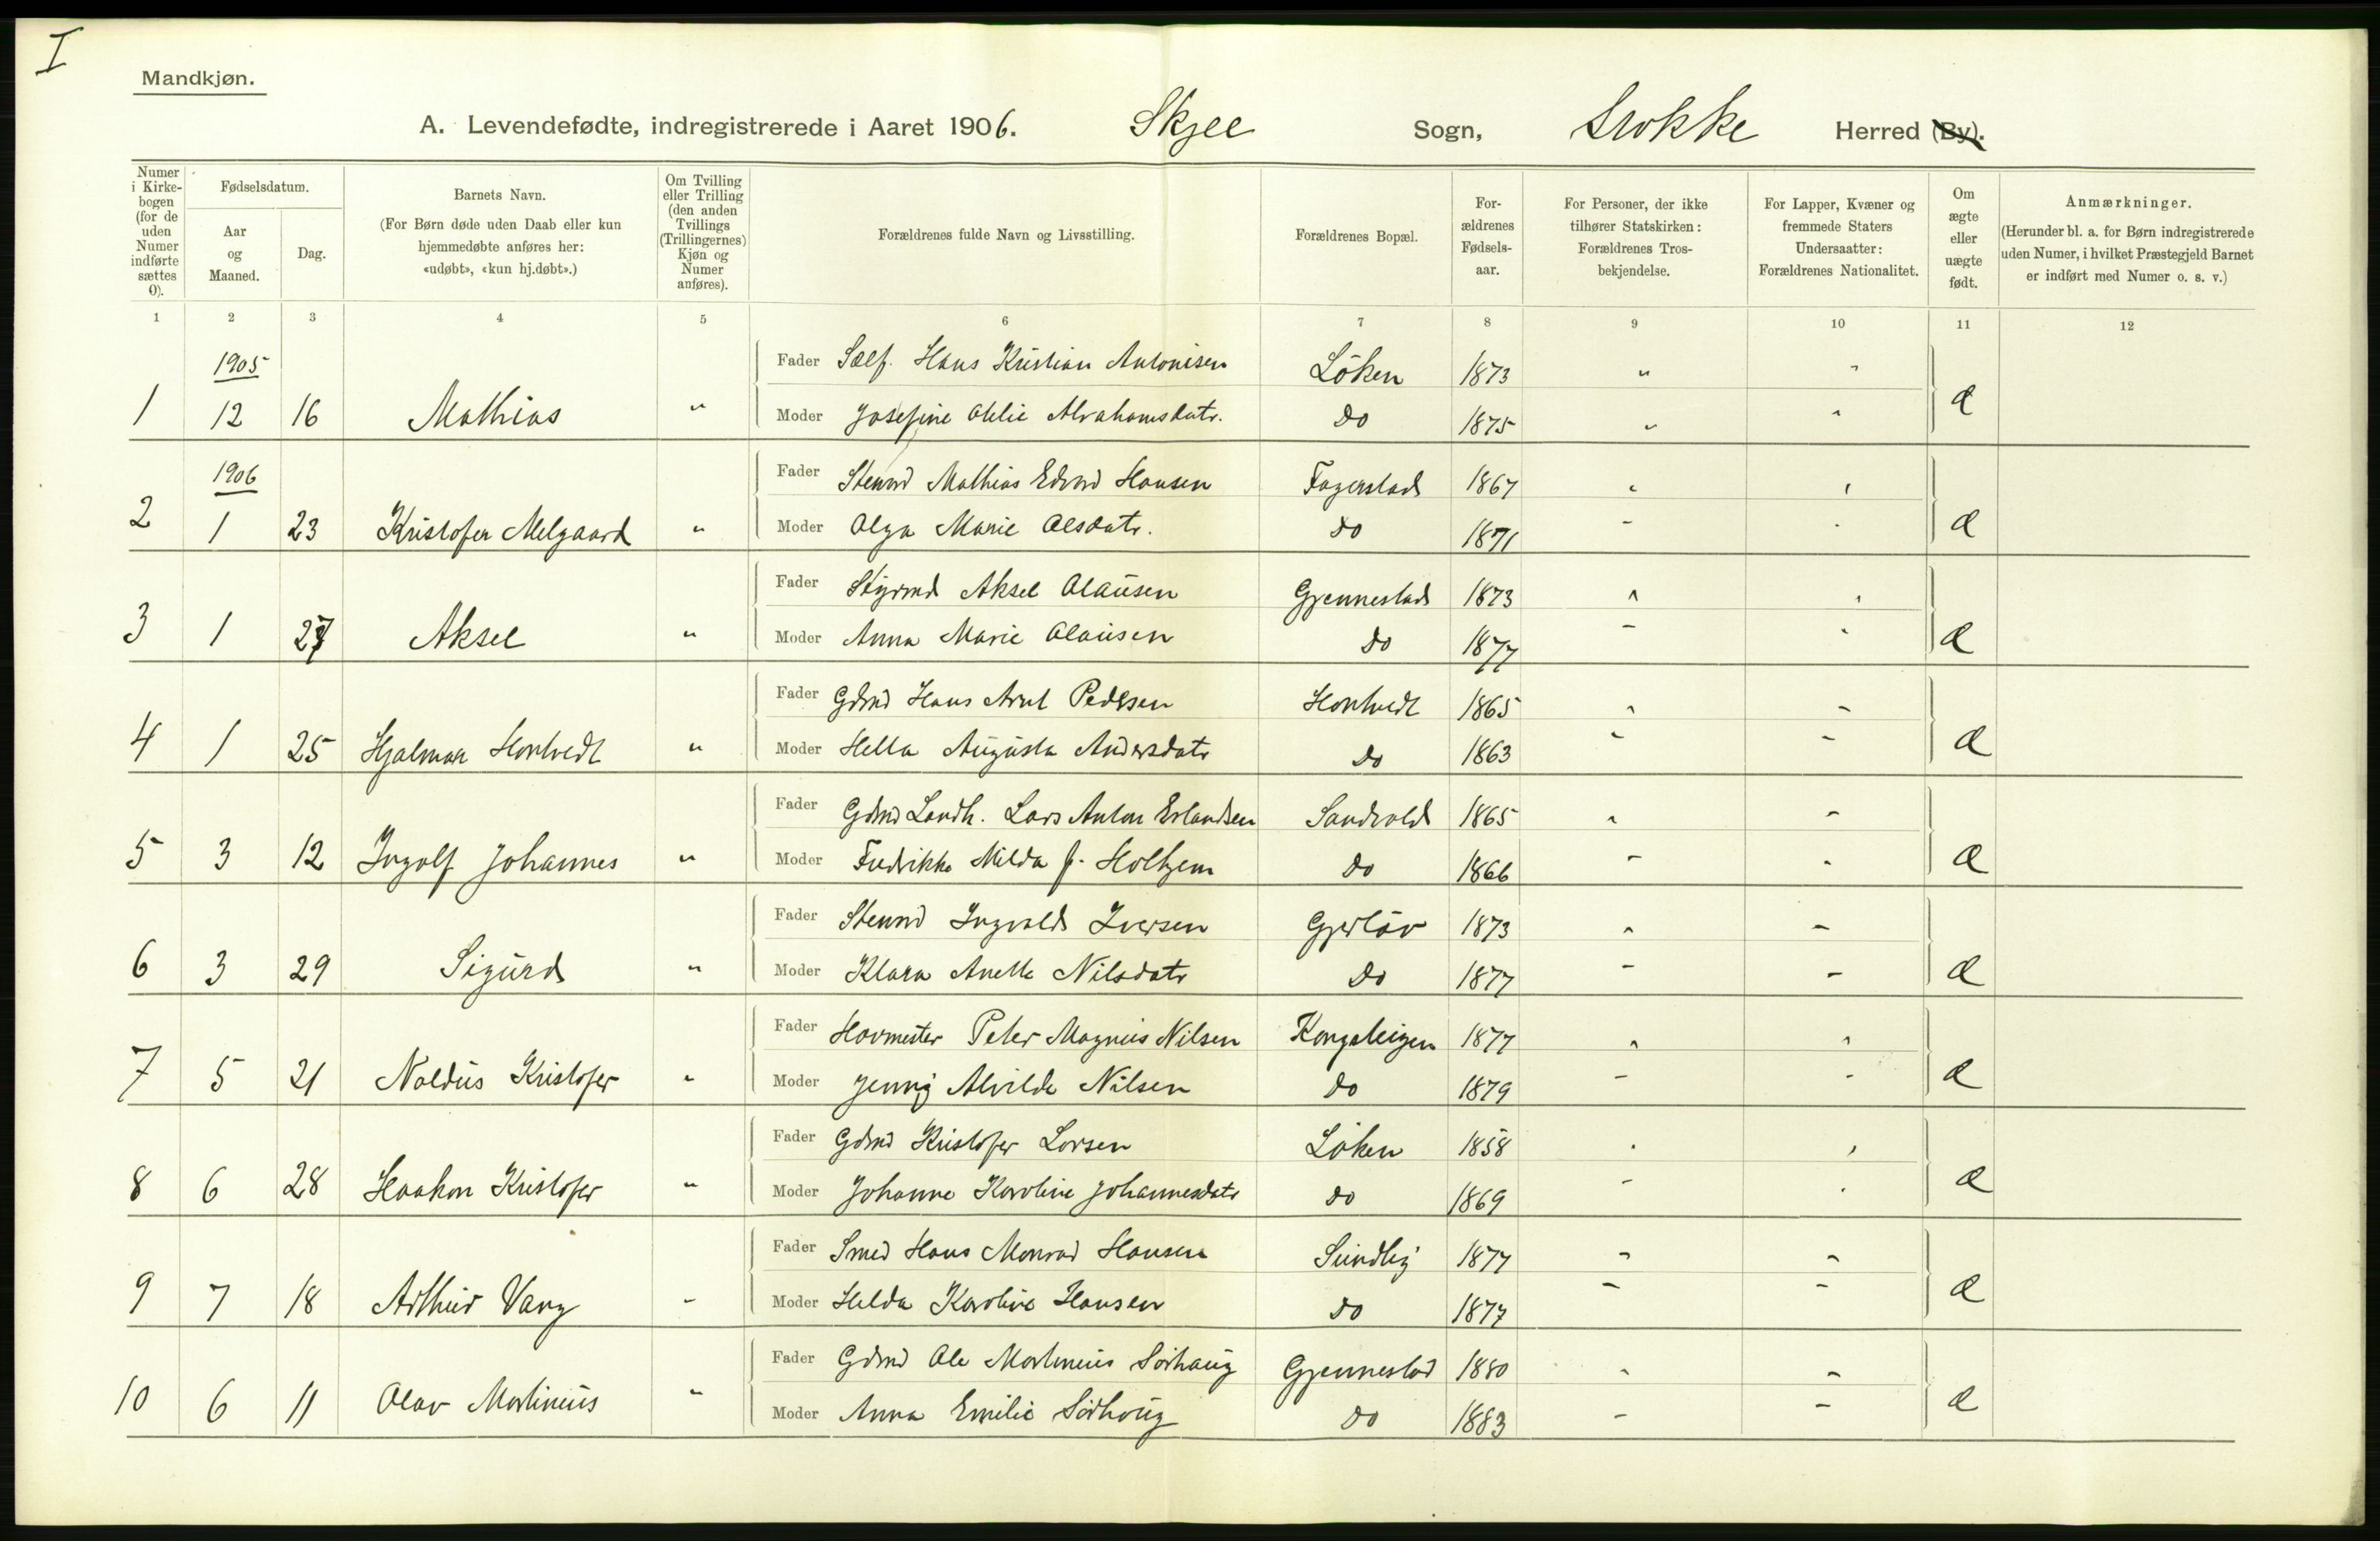 I
Mandkjøn.
A. Levendefødte, indregistrerede i Aaret 1906. Skjee Sogn, Stokke Herred (By).
Numer i Kirkebogen (for de uden Numer indførte sættes 0).
Fødselsdatum.
Aar og Maaned.
Dag.
Barnets Navn.
(For Børn døde uden Daab eller kun hjemmedøbte anføres her: «udøbt», «kun hj.døbt».)
Om Tvilling eller Trilling (den anden Tvillings (Trillingernes) Kjøn og Numer anføres).
Forældrenes fulde Navn og Livsstilling.
Forældrenes Bopæl.
For-ældrenes Fødsels-aar.
For Personer, der ikke tilhører Statskirken: Forældrenes Tros-bekjendelse.
For Lapper, Kvæner og fremmede Staters Undersaatter: Forældrenes Nationalitet.
Om ægte eller uægte født.
Anmærkninger.
(Herunder bl. a. for Børn indregistrerede uden Numer, i hvilket Præstegjeld Barnet er indført med Numer o. s. v.)
1 2 3 4 5 6 7 8 9 10 11 12
1905
Fader Sælf. Hans Kristian Antonisen Löken 1873 " "
1 12 16 Mathias " Moder Josefine Otilie Abrahamsdatr. do 1875 " " Æ
1906
Fader Stenmd Mathias Edvard Hansen Fagerstad 1867 " "
2 1 23 Kristofer Melgaard " Moder Olga Marie Olsdatr. do 1871 " " Æ
Fader Styrmd Aksel Olausen Gjennestad 1873 " "
3 1 27 Aksel " Moder Anna Marie Olausen do 1877 " " Æ
Fader Gdmd Hans Arnt Pedersen Hortvedt 1865 " "
4 1 25 Hjalmar Hortvedt " Moder Hella Augusta Andersdatr do 1863 " " Æ
Fader Gdmd Landh. Lars Anton Erlandsen Sandvold 1865 " "
5 3 12 Ingolf Johannes " Moder Fredrikke Milda f. do 1866 " " Æ
Fader Stenmd Ingvald Iversen Gjerlöv 1873 " "
6 3 29 Sigurd " Moder Klara Anette Nilsdatr do 1877 " " Æ
Fader Hovmester Peter Magnus Nilsen Kongsteigen 1877 " "
7 5 21 Noldus Kristofer " Moder Jenny Alvilde Nilsen do 1879 " " Æ
Fader Gdmd Kristofer Larsen Löken 1858 " "
8 6 28 Haakon Kristofer " Moder Johanne Karoline Johannesdatr do 1869 " " Æ
Fader Smed Hans Monrad Hansen Sundby 1877 " "
9 7 18 Arthur Vang " Moder Helda Karoline Hansen do 1877 " " Æ
Fader Gdmd Ole Martinius Sörhaug Gjennestad 1880 " "
10 6 11 Olav Martinius " Moder Anna Emilie Sörhaug do 1883 " " Æ